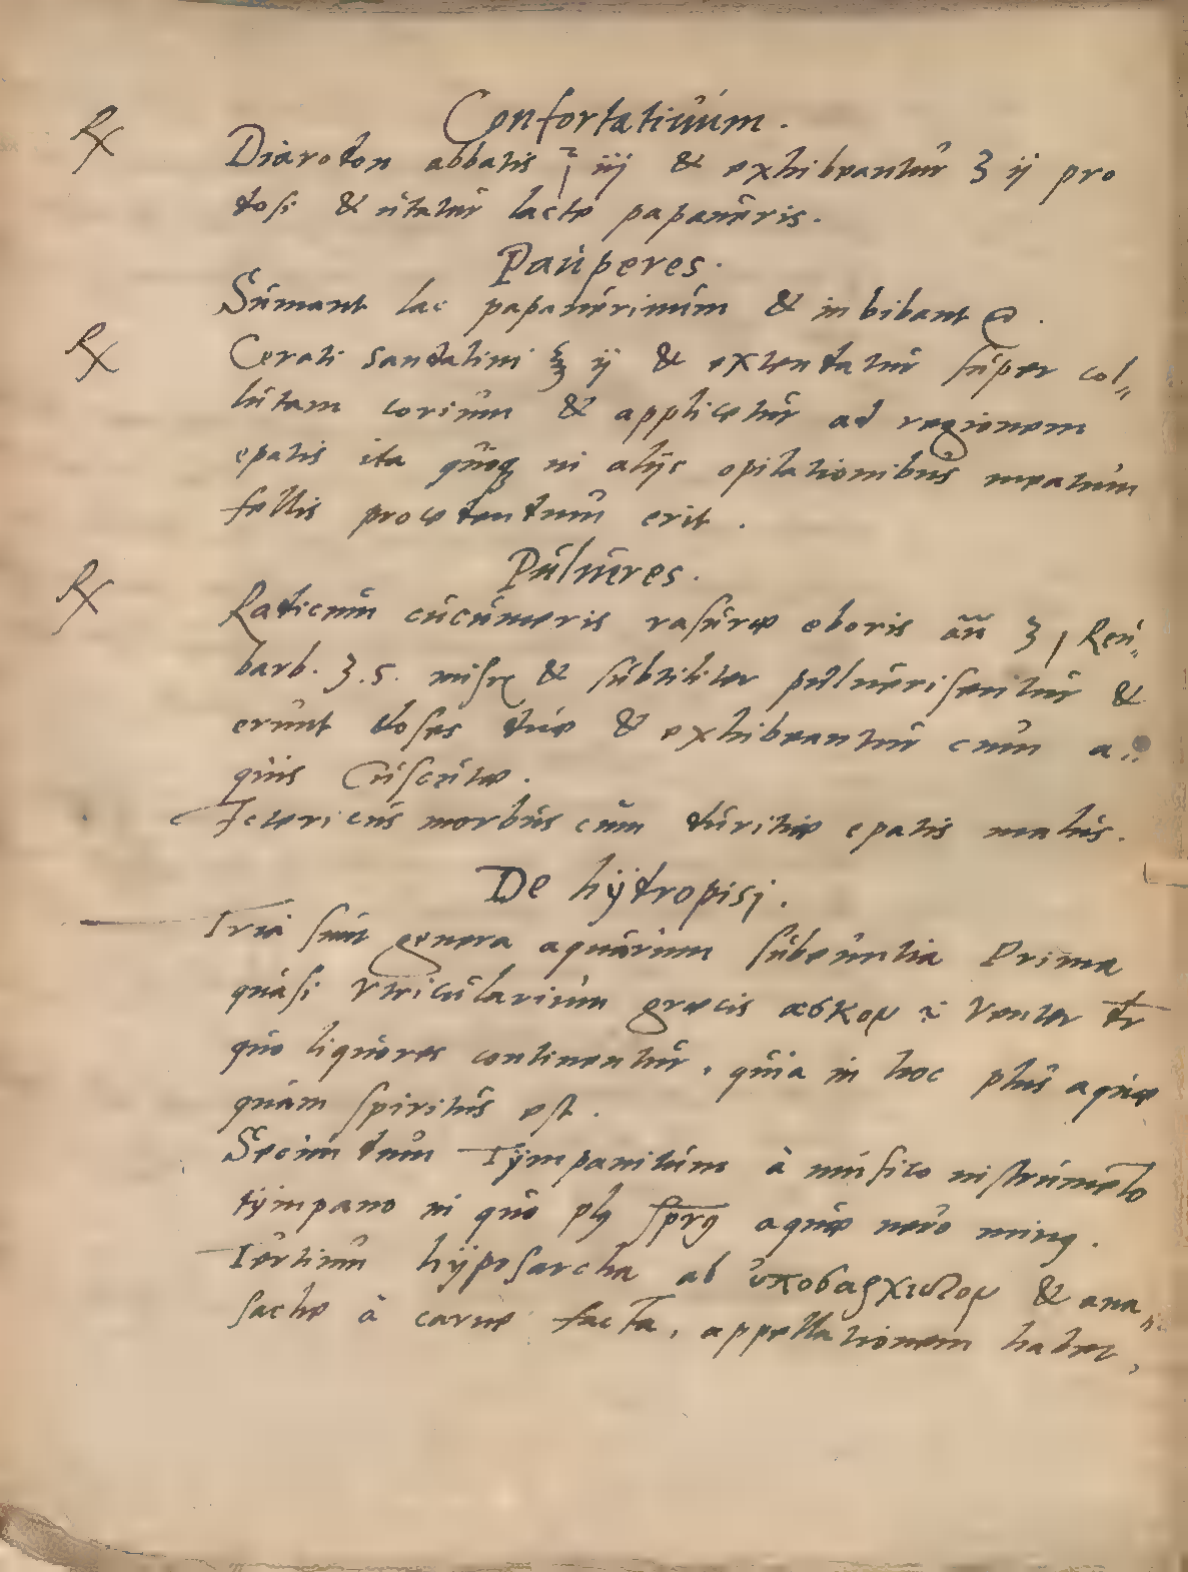 Confortatiuum.
℞ Diaroton abbatis ʒ iij & exhibeantur ʒ ij pro
dosi & utatur lacte papaueris.
Pauperes.
Sumant lac papauerinum & in bibant
℞ Cerati sandalini ℥ ij & extendatur super col„
lutam corium & applicetur ad regionem
epatis ita quoq in alijs opilationibus meatuum
fellis procedendum erit.
Pulueres.
℞ Radicum cucumeris rasuræ eboris añ ʒ j Reu„
barb. ʒ.s. misce & subtiliter puluerisentur &
erunt doses duæ & exhibeantur cum a„
quis Cuscutæ.
Ictericus morbus cum duritie epatis malus.
De hÿdropisi.
Tria sunt genera aquarum subeuntia Prima
quasi Vtricularium græcis ασκομ Venter
quo liquores continentur, quia in hoc plus aquæ
quam spiritus est.
Secundum Tÿmpanitum à musico instrumēto
tÿmpano in quo plq aquæ uero minq.
Tertium hÿposarcha ab & ana„
sache à carne facta, appellationem habet,